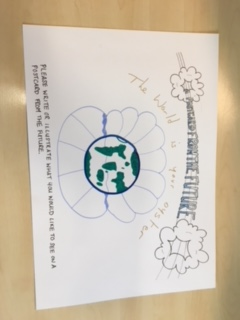 A POSTCARD FROM THE FUTURE
The World is your oyster
PLEASE WRITE OR ILLUSTRATE WHAT YOU WOULD LIKE TO SEE ON A
POSTCARD FROM THE FUTURE.